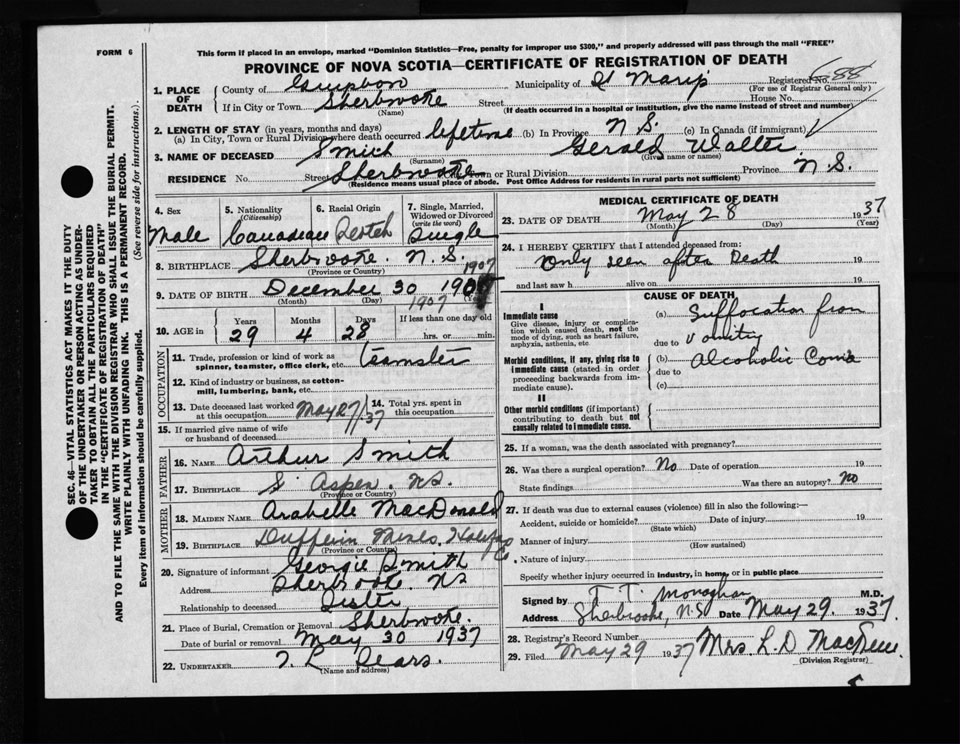 FORM 6
This form if placed in an envelope, marked "Dominion Statistics—Free, penalty for improper use $300," and properly addressed will pass through the mail "FREE"
PROVINCE OF NOVA SCOTIA—CERTIFICATE OF REGISTRATION OF DEATH
SEC. 46—VITAL STATISTICS ACT MAKES IT THE DUTY
OF THE UNDERTAKER OR PERSON ACTING AS UNDER-
TAKER TO OBTAIN ALL THE PARTICULARS REQUIRED
IN THE "CERTIFICATE OF REGISTRATION OF DEATH"
AND TO FILE THE SAME WITH THE DIVISION REGISTRAR WHO SHALL ISSUE THE BURIAL PERMIT.
WRITE PLAINLY WITH UNFADING INK. THIS IS A PERMANENT RECORD.
Every item of information should be carefully supplied. (See reverse side for instructions.)
1. PLACE OF DEATH County of Municipality of St Mary's Registered No. 688
(For use of Registrar General only)
If in City or Town Sherbrooke Street House No.
(Name) (If death occurred in a hospital or institution, give the name instead of street and number)
2. LENGTH OF STAY (in years, months and days)
(a) In City, Town or Rural Division where death occurred lifetime (b) In Province N.S. (c) In Canada (if immigrant)
3. NAME OF DECEASED Smith Gerald Walter
(Surname) (Given name or names)
RESIDENCE No. Street Sherbrooke City, Town or Rural Division Province N.S.
(Residence means usual place of abode. Post Office Address for residents in rural parts not sufficient)
4. Sex 5. Nationality (Citizenship) 6. Racial Origin 7. Single, Married, Widowed or Divorced (write the word)
Male Canadian Scotch Single
8. BIRTHPLACE Sherbrooke. N.S.
(Province or Country)
1907
9. DATE OF BIRTH December 30 190
(Month) (Day) 1907 (Year)
10. AGE in Years Months Days If less than one day old
29 4 28 hrs. or min.
OCCUPATION
11. Trade, profession or kind of work as spinner, teamster, office clerk, etc. teamster
12. Kind of industry or business, as cotton-mill, lumbering, bank, etc.
13. Date deceased last worked at this occupation May 27/37 14. Total yrs. spent in this occupation
15. If married give name of wife or husband of deceased
FATHER
16. NAME Arthur Smith
17. BIRTHPLACE S Aspen. N.S.
(Province or Country)
MOTHER
18. MAIDEN NAME Arabelle MacDonald
19. BIRTHPLACE Dufferin Mines, Halifax Co
(Province or Country)
20. Signature of informant Georgie Smith
Address Sherbrooke NS
Relationship to deceased Sister
21. Place of Burial, Cremation or Removal Sherbrooke.
Date of burial or removal May 30 1937
22. UNDERTAKER
(Name and address)
MEDICAL CERTIFICATE OF DEATH
23. DATE OF DEATH May 28 1937
(Month) (Day) (Year)
24. I HEREBY CERTIFY that I attended deceased from:
Only seen after Death 19
and last saw h alive on 19
CAUSE OF DEATH
I
Immediate cause
Give disease, injury or complication which caused death, not the mode of dying, such as heart failure, asphyxia, asthenia, etc.
(a) Suffocation from
due to Vomiting
Morbid conditions, if any, giving rise to immediate cause (stated in order proceeding backwards from immediate cause).
(b) Alcoholic Coma
due to
(c)
II
Other morbid conditions (if important) contributing to death but not causally related to immediate cause.
25. If a woman, was the death associated with pregnancy?
26. Was there a surgical operation? No Date of operation 19
State findings Was there an autopsy? no
27. If death was due to external causes (violence) fill in also the following:—
Accident, suicide or homicide? Date of injury 19
(State which)
Manner of injury
(How sustained)
Nature of injury
Specify whether injury occurred in industry, in home, or in public place
Signed by T. T. Monaghan M.D.
Address Sherbrooke, N.S Date May 29. 1937
28. Registrar's Record Number
29. Filed May 29 1937 Mrs. L. D.
(Division Registrar)